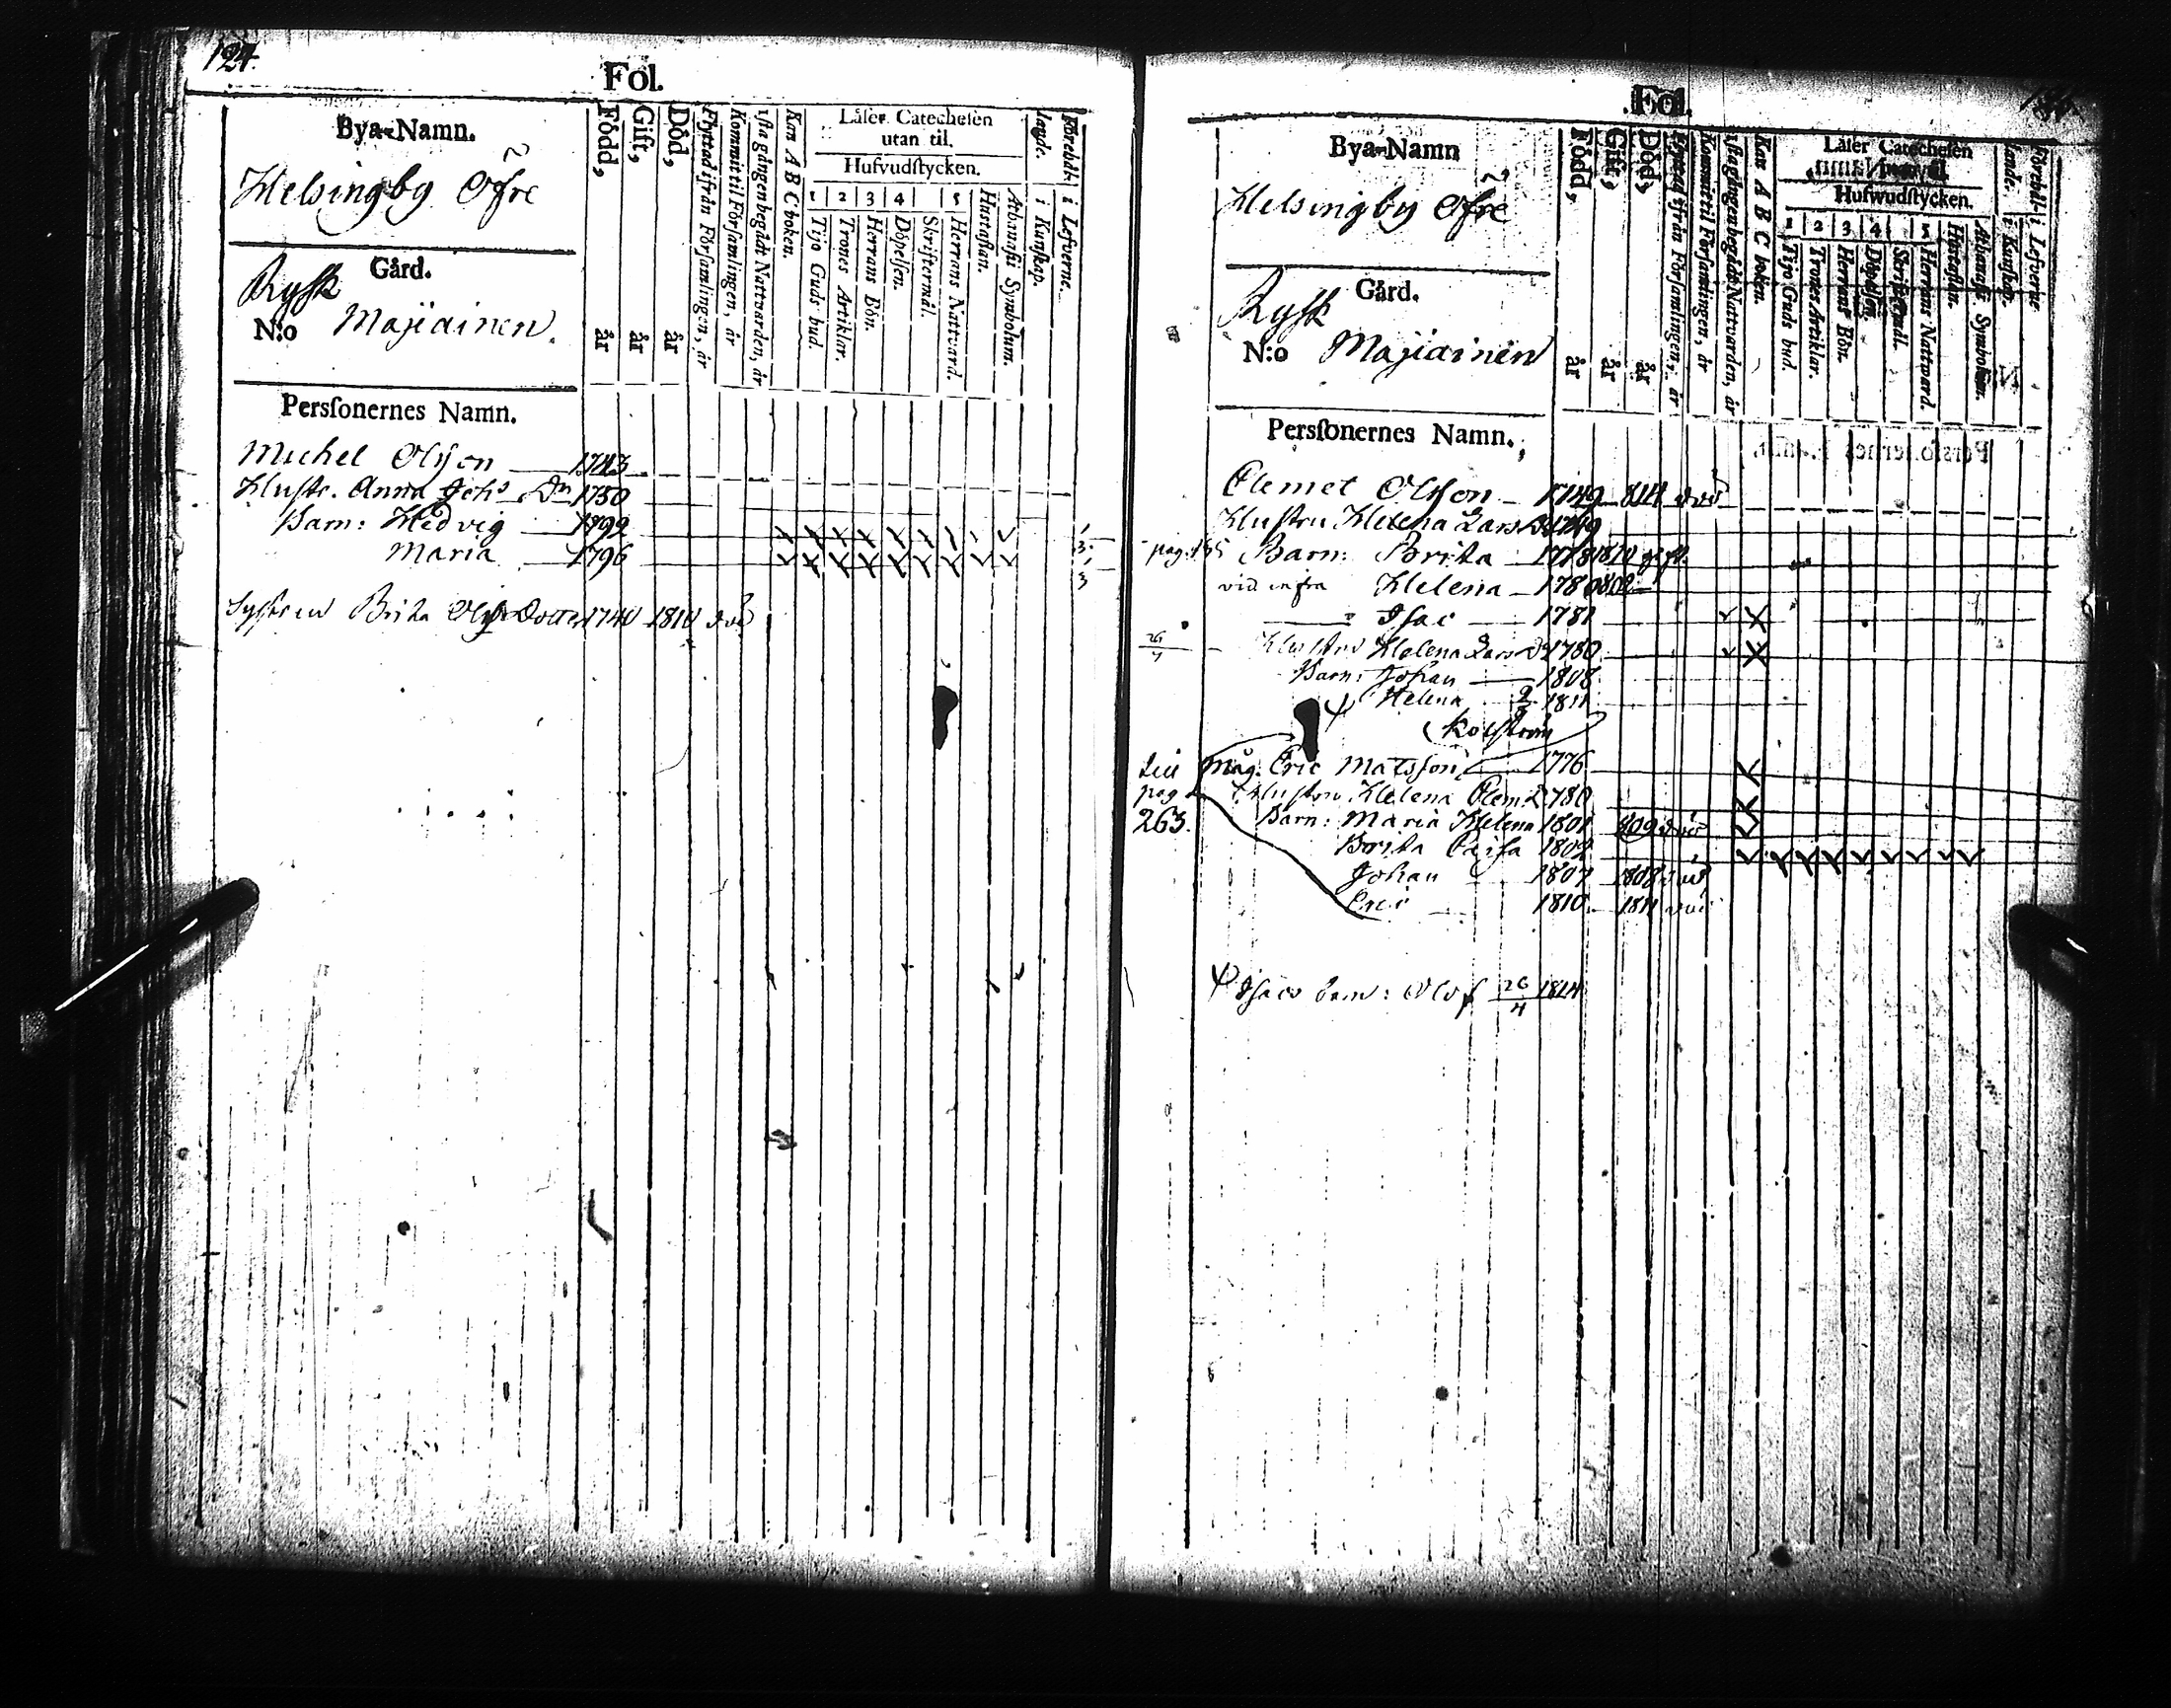 124.
Fol.
Bya-Namn.
Helsingby Öfre
Gård.
Rysk
N:o Majiainen.
Persſonernes Namn.
Född, år
Gift, år
Död, år
Flyttad ifrån Förſamlingen, år
Kommit til Förſamlingen, år
1ſta gången begådt Nattvarden, år
Kan A B C boken.
Läſer Catecheſen
utan til.
Hufvudſtycken.
1 2 3 4 5
Tijo Guds bud.
Trones Artiklar.
Herrans Bön.
Döpelſen.
Skriftermål.
Herrans Nattvard.
Huſtaflan.
Athanaſii Symbolum.
i Kunſkap.
i Lefverne.
Michel Olsson 1743
Hustr. Anna Johs Dr 1750
Barn: Hedvig 1792
Maria 1796
Systren Brita Olofs Dotter 1740 1810 död
Fol.
Bya-Namn
Helsingby Öfre
Gård.
Rysk
N:o Majiainen
Persſonernes Namn.
Född, år
Gift, år
Död, år
Flyttad ifrån Förſamlingen, år
Kommit til Förſamlingen, år
1ſta gången begådt Nattvarden, år
Kan A B C boken.
Läſer Catecheſen
Hufwudſtycken.
1 2 3 4 5
Tijo Guds bud.
Trones Artiklar.
Herrans Bön.
Döpelſen.
Skriftermål.
Herrans Nattward.
Huſtaflan.
Athanaſii Symbolum.
i Kunſkap.
i Lefverne
Clemet Olsson 1749 814 död
Hustru Helena Lars D 1749
Barn: Brita 1778 1810 gift.
vid infra Helena 1780 802
Isac 1781
Hustru Helena Lars D 1780
Barn: Johan 1808
Helena 1811
Kolström
Måg: Eric Matsson 1776
pag Hustru Helena Clem D 1780
263. Barn: Maria Helena 1801 809 död
Brita Caisa 1802
Johan 1807 1808 död
Eric 1810 1811 död
Isacs barn: Olof 26/4 1814